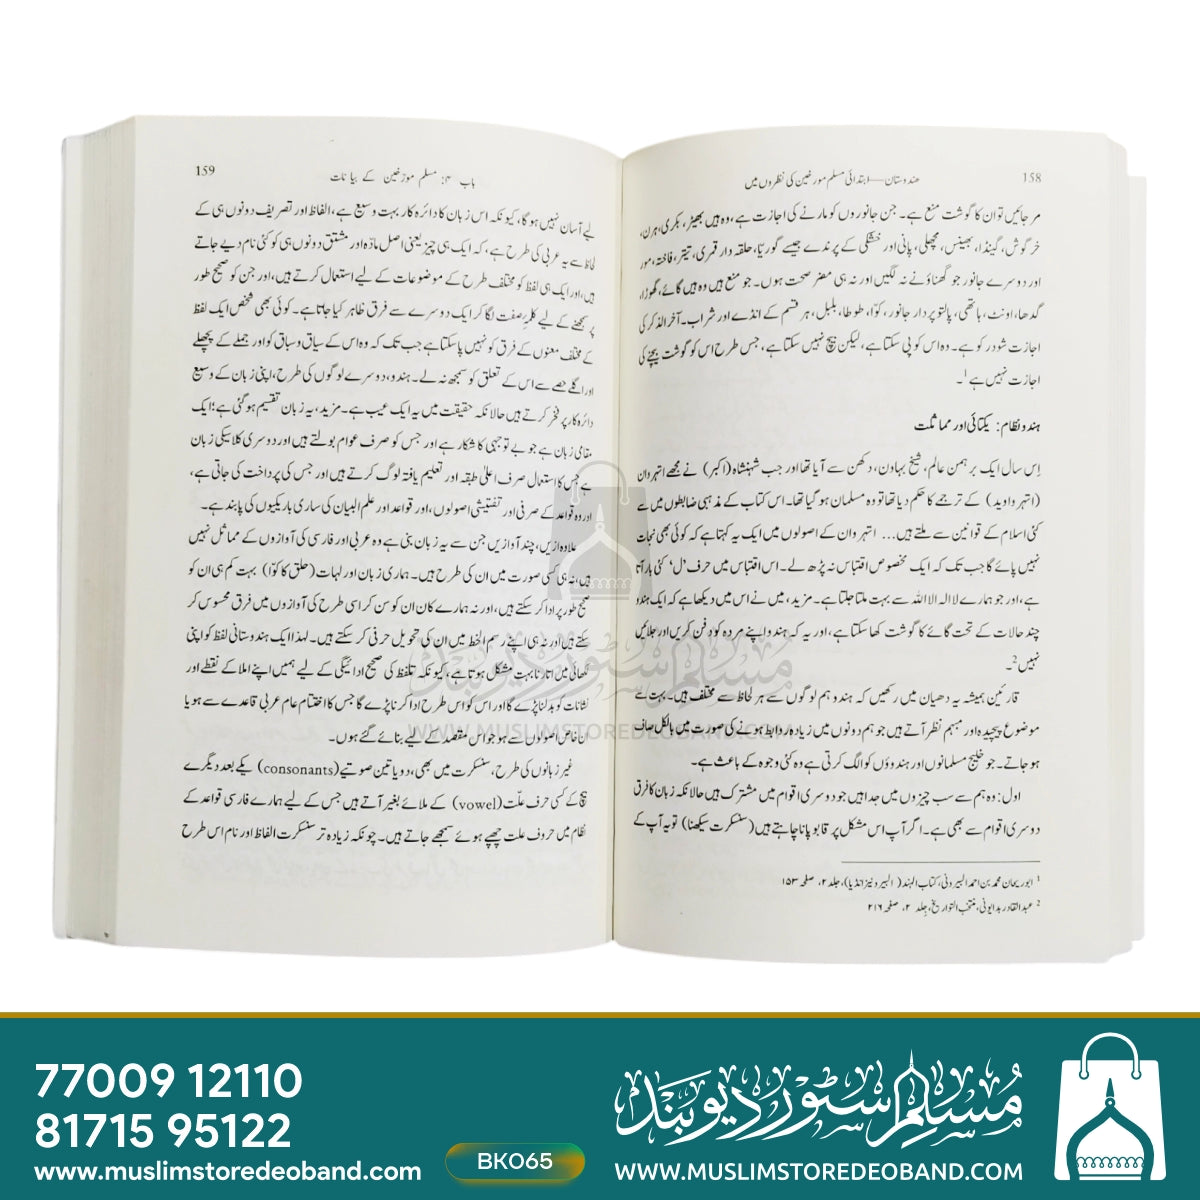 158
ہندوستان—ابتدائی مسلم مورخین کی نظروں میں
مر جائیں تو ان کا گوشت منع ہے۔ جن جانوروں کو مارنے کی اجازت ہے، وہ ہیں بھیڑ، بکری، ہرن،
خرگوش، گینڈا، بھینس، مچھلی، پانی اور خشکی کے پرندے جیسے گوریّا، حلقہ دار قمری، تیتر، فاختہ، مور
اور دوسرے جانور جو گھناؤنے نہ لگیں اور نہ ہی مضر صحت ہوں۔ جو منع ہیں وہ ہیں گائے، گھوڑا،
گدھا، اونٹ، ہاتھی، پالتو پردار جانور، کوّا، طوطا، بلبل، ہر قسم کے انڈے اور شراب۔ آخر الذکر کی
اجازت شودر کو ہے۔ وہ اس کو پی سکتا ہے، لیکن بیچ نہیں سکتا ہے، جس طرح اس کو گوشت بیچنے کی
اجازت نہیں ہے¹۔
ہندو نظام: یکتائی اور مماثلت
اِس سال ایک برہمن عالم، شیخ بہاون، دکھن سے آیا تھا اور جب شہنشاہ (اکبر) نے مجھے اتہروان
(اتہروا وید) کے ترجمے کا حکم دیا تھا تو وہ مسلمان ہو گیا تھا۔ اس کتاب کے مذہبی ضابطوں میں سے
کئی اسلام کے قوانین سے ملتے ہیں... اتہروان کے اصولوں میں ایک یہ کہتا ہے کہ کوئی بھی نجات
نہیں پائے گا جب تک کہ ایک مخصوص اقتباس نہ پڑھ لے۔ اس اقتباس میں حرف 'ل' کئی بار آتا
ہے، اور جو ہمارے لا الہ الا اللہ سے بہت ملتا جلتا ہے۔ مزید، میں نے اس میں دیکھا ہے کہ ایک ہندو
چند حالات کے تحت گائے کا گوشت کھا سکتا ہے، اور یہ کہ ہندو اپنے مردہ کو دفن کریں اور جلائیں
نہیں²۔
قارئین ہمیشہ یہ دھیان میں رکھیں کہ ہندو ہم لوگوں سے ہر لحاظ سے مختلف ہیں۔ بہت سے
موضوع پیچیدہ اور مبہم نظر آتے ہیں جو ہم دونوں میں زیادہ روابط ہونے کی صورت میں بالکل صاف
ہو جاتے۔ جو خلیج مسلمانوں اور ہندوؤں کو الگ کرتی ہے وہ کئی وجوہ کے باعث ہے۔
اول: وہ ہم سے سب چیزوں میں جدا ہیں جو دوسری اقوام میں مشترک ہیں حالانکہ زبان کا فرق
دوسری اقوام سے بھی ہے۔ اگر آپ اس مشکل پر قابو پانا چاہتے ہیں (سنسکرت سیکھنا) تو یہ آپ کے
¹ ابو ریحان محمد بن احمد البیرونی، کتاب الہند (البیرونیز انڈیا)، جلد ۲، صفحہ ۱۵۳
² عبدالقادر بدایونی، منتخب التواریخ، جلد ۲، صفحہ ۲۱۶
159
باب ۴: مسلم مورخین کے بیانات
لیے آسان نہیں ہوگا، کیونکہ اس زبان کا دائرہ کار بہت وسیع ہے، الفاظ اور تصریف دونوں ہی کے
لحاظ سے یہ عربی کی طرح ہے، کہ ایک ہی چیز یعنی اصل مادّہ اور مشتق دونوں ہی کو کئی نام دیے جاتے
ہیں، اور ایک ہی لفظ کو مختلف طرح کے موضوعات کے لیے استعمال کرتے ہیں، اور جن کو صحیح طور
پر سمجھنے کے لیے کلمۂ صفت لگا کر ایک دوسرے سے فرق ظاہر کیا جاتا ہے۔ کوئی بھی شخص ایک لفظ
کے مختلف معنوں کے فرق کو نہیں پا سکتا ہے جب تک کہ وہ اس کے سیاق و سباق کو اور جملے کے پچھلے
اور اگلے حصے سے اس کے تعلق کو سمجھ نہ لے۔ ہندو، دوسرے لوگوں کی طرح، اپنی زبان کے وسیع
دائرہ کار پر فخر کرتے ہیں حالانکہ حقیقت میں یہ ایک عیب ہے۔ مزید، یہ زبان تقسیم ہو گئی ہے؛ ایک
مقامی زبان ہے جو بے توجہی کا شکار ہے اور جس کو صرف عوام بولتے ہیں اور دوسری کلاسیکی زبان
ہے جس کا استعمال صرف اعلیٰ طبقہ اور تعلیم یافتہ لوگ کرتے ہیں اور جس کی پرداخت کی جاتی ہے،
اور وہ قواعد کے صرفی اور تفتیشی اصولوں، اور قواعد اور علم البیان کی ساری باریکیوں کی پابند ہے۔
علاوہ ازیں، چند آوازیں جن سے یہ زبان بنی ہے وہ عربی اور فارسی کی آوازوں کے مماثل نہیں
ہیں، نہ ہی کسی صورت میں ان کی طرح ہیں۔ ہماری زبان اور لہات (حلق کا کوّا) بہت کم ہی ان کو
صحیح طور پر ادا کر سکتے ہیں، اور نہ ہمارے کان ان کو سن کر اسی طرح کی آوازوں میں فرق محسوس کر
سکتے ہیں اور نہ ہی اپنے رسم الخط میں ان کی تحویل حرفی کر سکتے ہیں۔ لہٰذا ایک ہندوستانی لفظ کو اپنی
لکھائی میں اتارنا بہت مشکل ہوتا ہے، کیونکہ تلفظ کی صحیح ادائیگی کے لیے ہمیں اپنے املا کے نقطے اور
نشانات کو بدلنا پڑے گا اور اس کو اس طرح ادا کرنا پڑے گا جس کا اختتام عام عربی قاعدے سے ہو یا
ان خاص اصولوں سے ہو جو اس مقصد کے لیے بنائے گئے ہوں۔
غیر زبانوں کی طرح، سنسکرت میں بھی، دو یا تین صوتیے (consonants) یکے بعد دیگرے
بیچ کے کسی حرف علّت (vowel) کے ملائے بغیر آتے ہیں جس کے لیے ہمارے فارسی قواعد کے
نظام میں حروف علت چھپے ہوئے سمجھے جاتے ہیں۔ چونکہ زیادہ تر سنسکرت الفاظ اور نام اس طرح
مسلم سٹور دیوبند
WWW.MUSLIMSTOREDEOBAND.COM
77009 12110
81715 95122
www.muslimstoredeoband.com
BK065
مسلم سٹور دیوبند
WWW.MUSLIMSTOREDEOBAND.COM